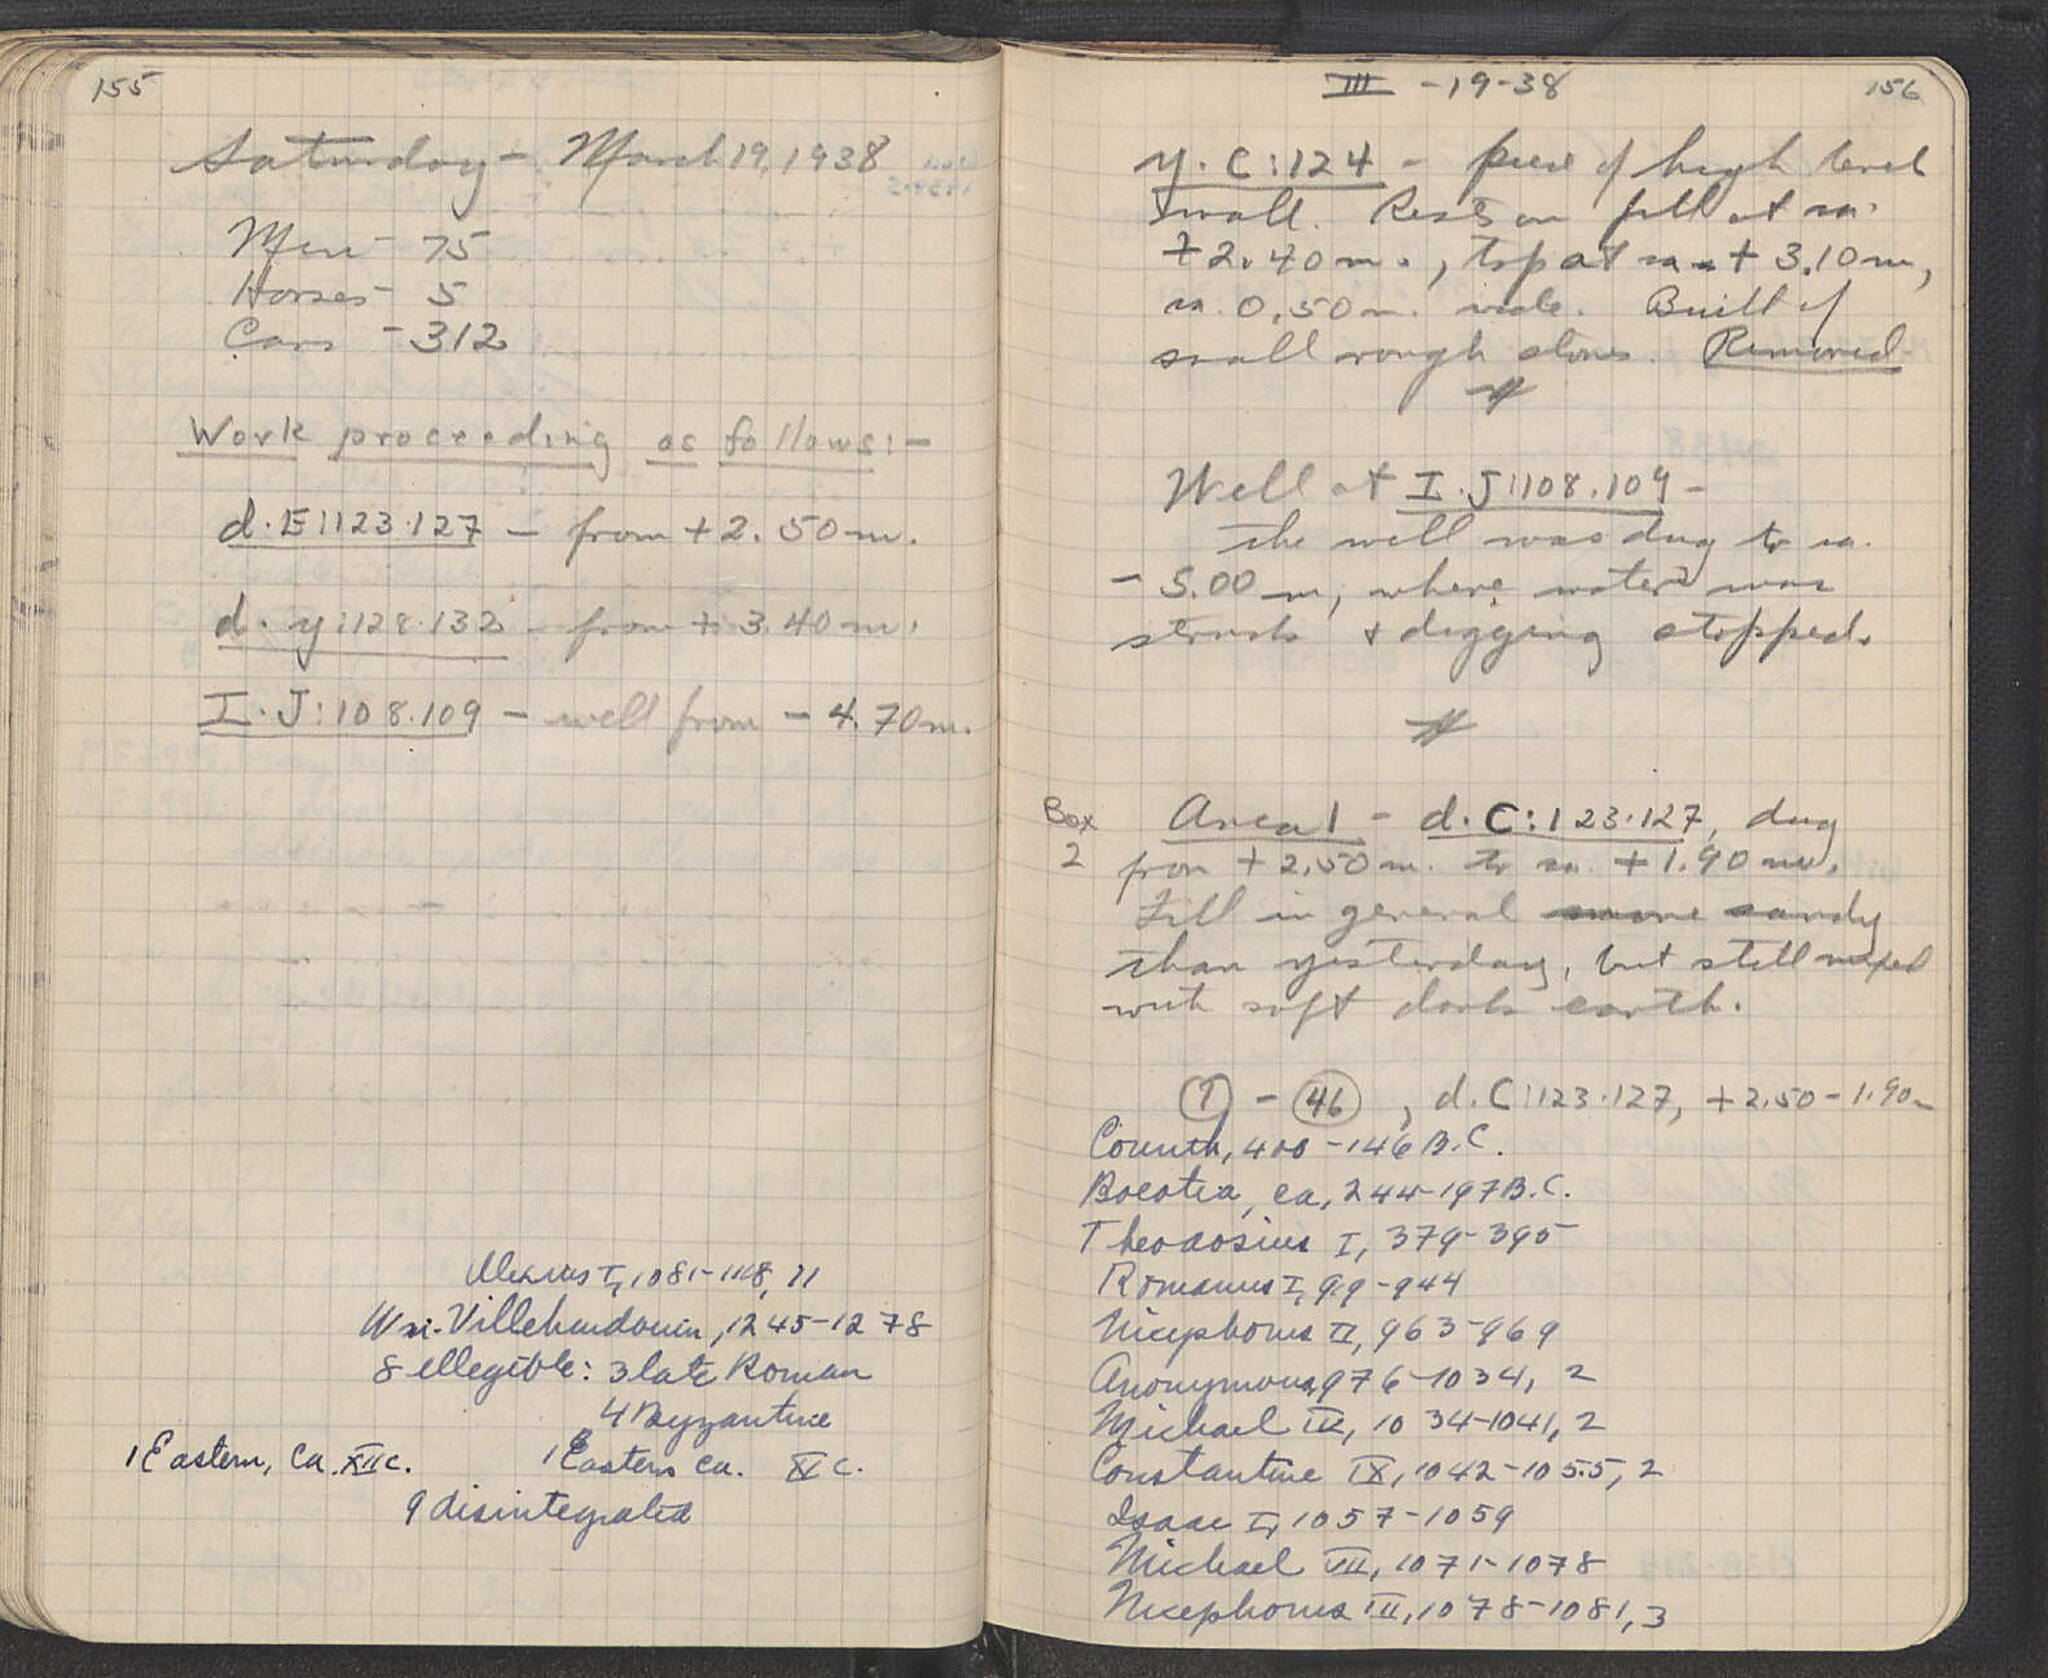 155
Saturday - March 19, 1938
Men - 75
Horses - 5
Cars - 312
Work proceeding as follows:-
d.E:123.127 - from +2.50 m.
d.y:128.132 - from + 3.40 m.
I.J:108.109 - well from - 4.70 m.
Alexius I, 1081-1118, 11
Wm. Villehardouin, 1245-1278
8 illegible: 3 late Roman
4 Byzantine
1 Eastern, ca. XII c.
1 Eastern ca. XV c.
9 disintegrated
III -19-38
156
y.C:124 - piece of high level
wall. Rests on fill at ca.
+2.40 m., top at ca. + 3.10 m,
ca. 0.50 m. wide. Built of
small rough stones. Removed.
Well at I.J:108.109 -
The well was dug to ca.
- 5.00 m, where water was
struck & digging stopped.
Box
2
Area 1 - d.C:123.127, dug
from +2.50 m. to ca. +1.90 m.
Fill in general more sandy
than yesterday, but still mixed
with soft dark earth.
1 - 46, d.C:123.127, +2.50-1.90 m
Corinth, 400-146 B.C.
Boeotia, ca, 244-197 B.C.
Theodosius I, 379-395
Romanus I, 919-944
Nicephorus II, 963-969
Anonymous, 976-1034, 2
Michael IV, 1034-1041, 2
Constantine IX, 1042-1055, 2
Isaac I, 1057-1059
Michael VII, 1071-1078
Nicephorus III, 1078-1081, 3